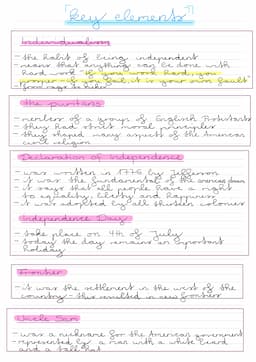 key elements
individualism
- the habit of being independent
- means that anything can be done with
hard work "if you work hard, you
prosper - if you fail, it is your own fault"
- from rags to riches
the puritans
- members of a group of English Protestants
- they had strict moral principles
- they shaped many aspects of the American
civil religion
Declaration of Independence
- was written in 1776 by Jefferson
- it was the fundamental of the american dream
- it says that all people have a right
to equality, liberty and happiness
- it was adopted by all thirteen colonies
Independence Day
- take place on 4th of July
- today the day remains an important
holiday
Frontier
- it was the settlement in the west of the
country - this resulted in new frontier
Uncle Sam
- was a nickname for the American government
- represented by a man with a white beard
and a tall hat